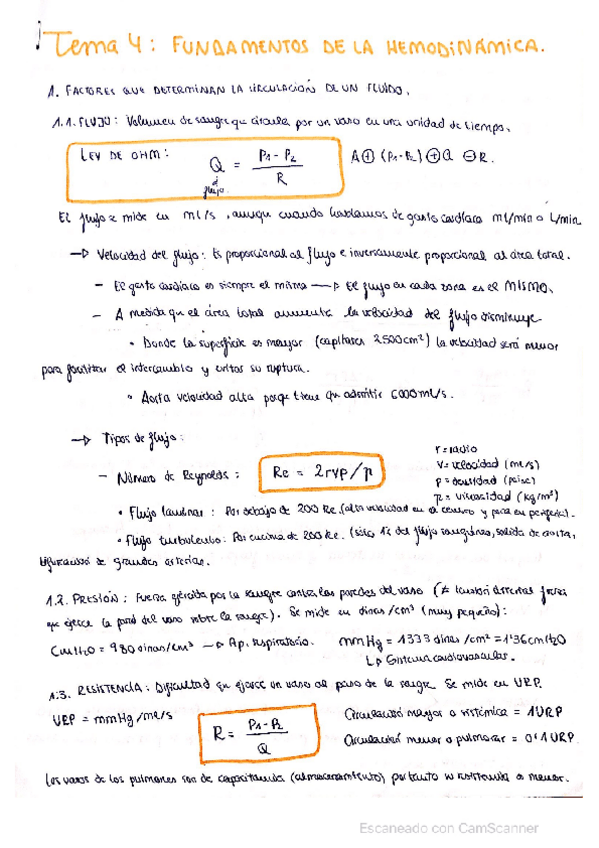 Tema 4: FUNDAMENTOS DE LA HEMODINÁMICA.
1. FACTORES QUE DETERMINAN LA CIRCULACIÓN DE UN FLUIDO.
1.1. FLUJO: Volumen de sangre que circula por un vaso en una unidad de tiempo.
LEY DE OHM: Q = P1 - P2 / R A⊕ (P1-P2) ⊕Q ⊖R.
flujo.
El flujo se mide en ml/s, aunque cuando hablamos de gasto cardíaco ml/min o L/min
→ Velocidad del flujo: Es proporcional al flujo e inversamente proporcional al área total.
- El gasto cardíaco es siempre el mismo → El flujo en cada zona es el MISMO.
- A medida que el área total aumenta la velocidad del flujo disminuye
• Donde la superficie es mayor (capilares 2500cm²) la velocidad será menor
para facilitar el intercambio y evitar su ruptura.
• Aorta velocidad alta porque tiene que admitir 6000ml/s.
→ Tipos de flujo:
r = radio
- Número de Reynolds: Re = 2rvρ/η
v = velocidad (ml/s)
ρ = densidad (poise)
η = viscosidad (kg/m³)
• Flujo laminar: Por debajo de 200 Re. (alta velocidad en el centro y poca en periferia).
• Flujo turbulento: Por encima de 200 Re. (sólo 1% del flujo sanguíneo, salida de aorta,
bifurcación de grandes arterias.
1.2. PRESIÓN: Fuerza ejercida por la sangre contra las paredes del vaso (≠ tensión arterial fuerza
que ejerce la pared del vaso sobre la sangre). Se mide en dinas/cm³ (muy pequeño):
CmH2O = 980 dinas/cm³ → Ap. respiratorio. mmHg = 1333 dinas/cm² = 1'36cmH2O
↳ Sistema cardiovascular.
1.3. RESISTENCIA: Dificultad que ejerce un vaso al paso de la sangre. Se mide en URP.
URP = mmHg/ml/s R = P1 - P2 / Q Circulación mayor o sistémica = 1URP
Circulación menor o pulmonar = 0'1URP.
Los vasos de los pulmones son de capacitancia (almacenamiento) por tanto su resistencia es menor.
Escaneado con CamScanner